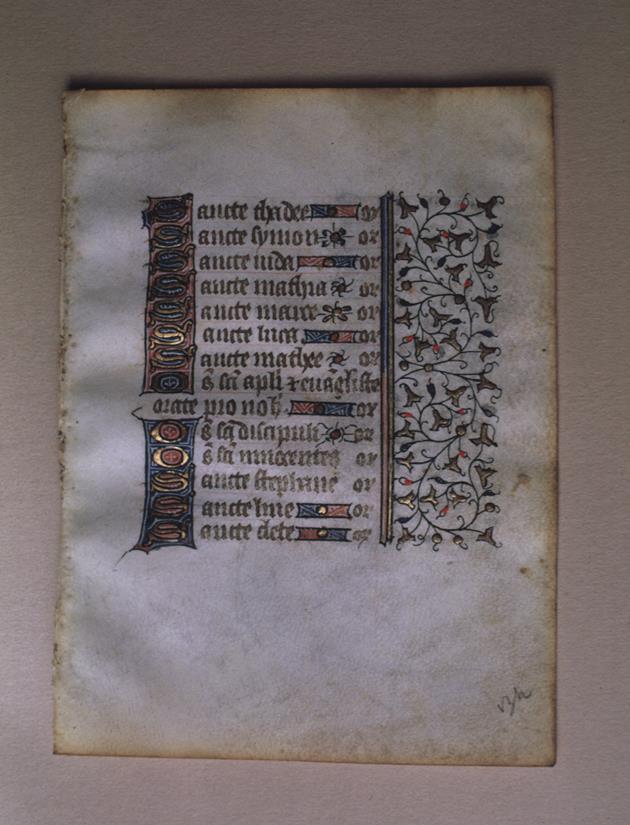 Sancte thadee or
Sancte symon or
Sancte iuda or
Sancte mathia or
Sancte marce or
Sancte luca or
Sancte mathee or
Oēs sc̄i apl̄i ⁊ euāgliste
orate pro nob̄ or
Oēs sc̄i discipuli or
Oēs sc̄i innocentes or
Sancte stephane or
Sancte line or
Sancte clete or